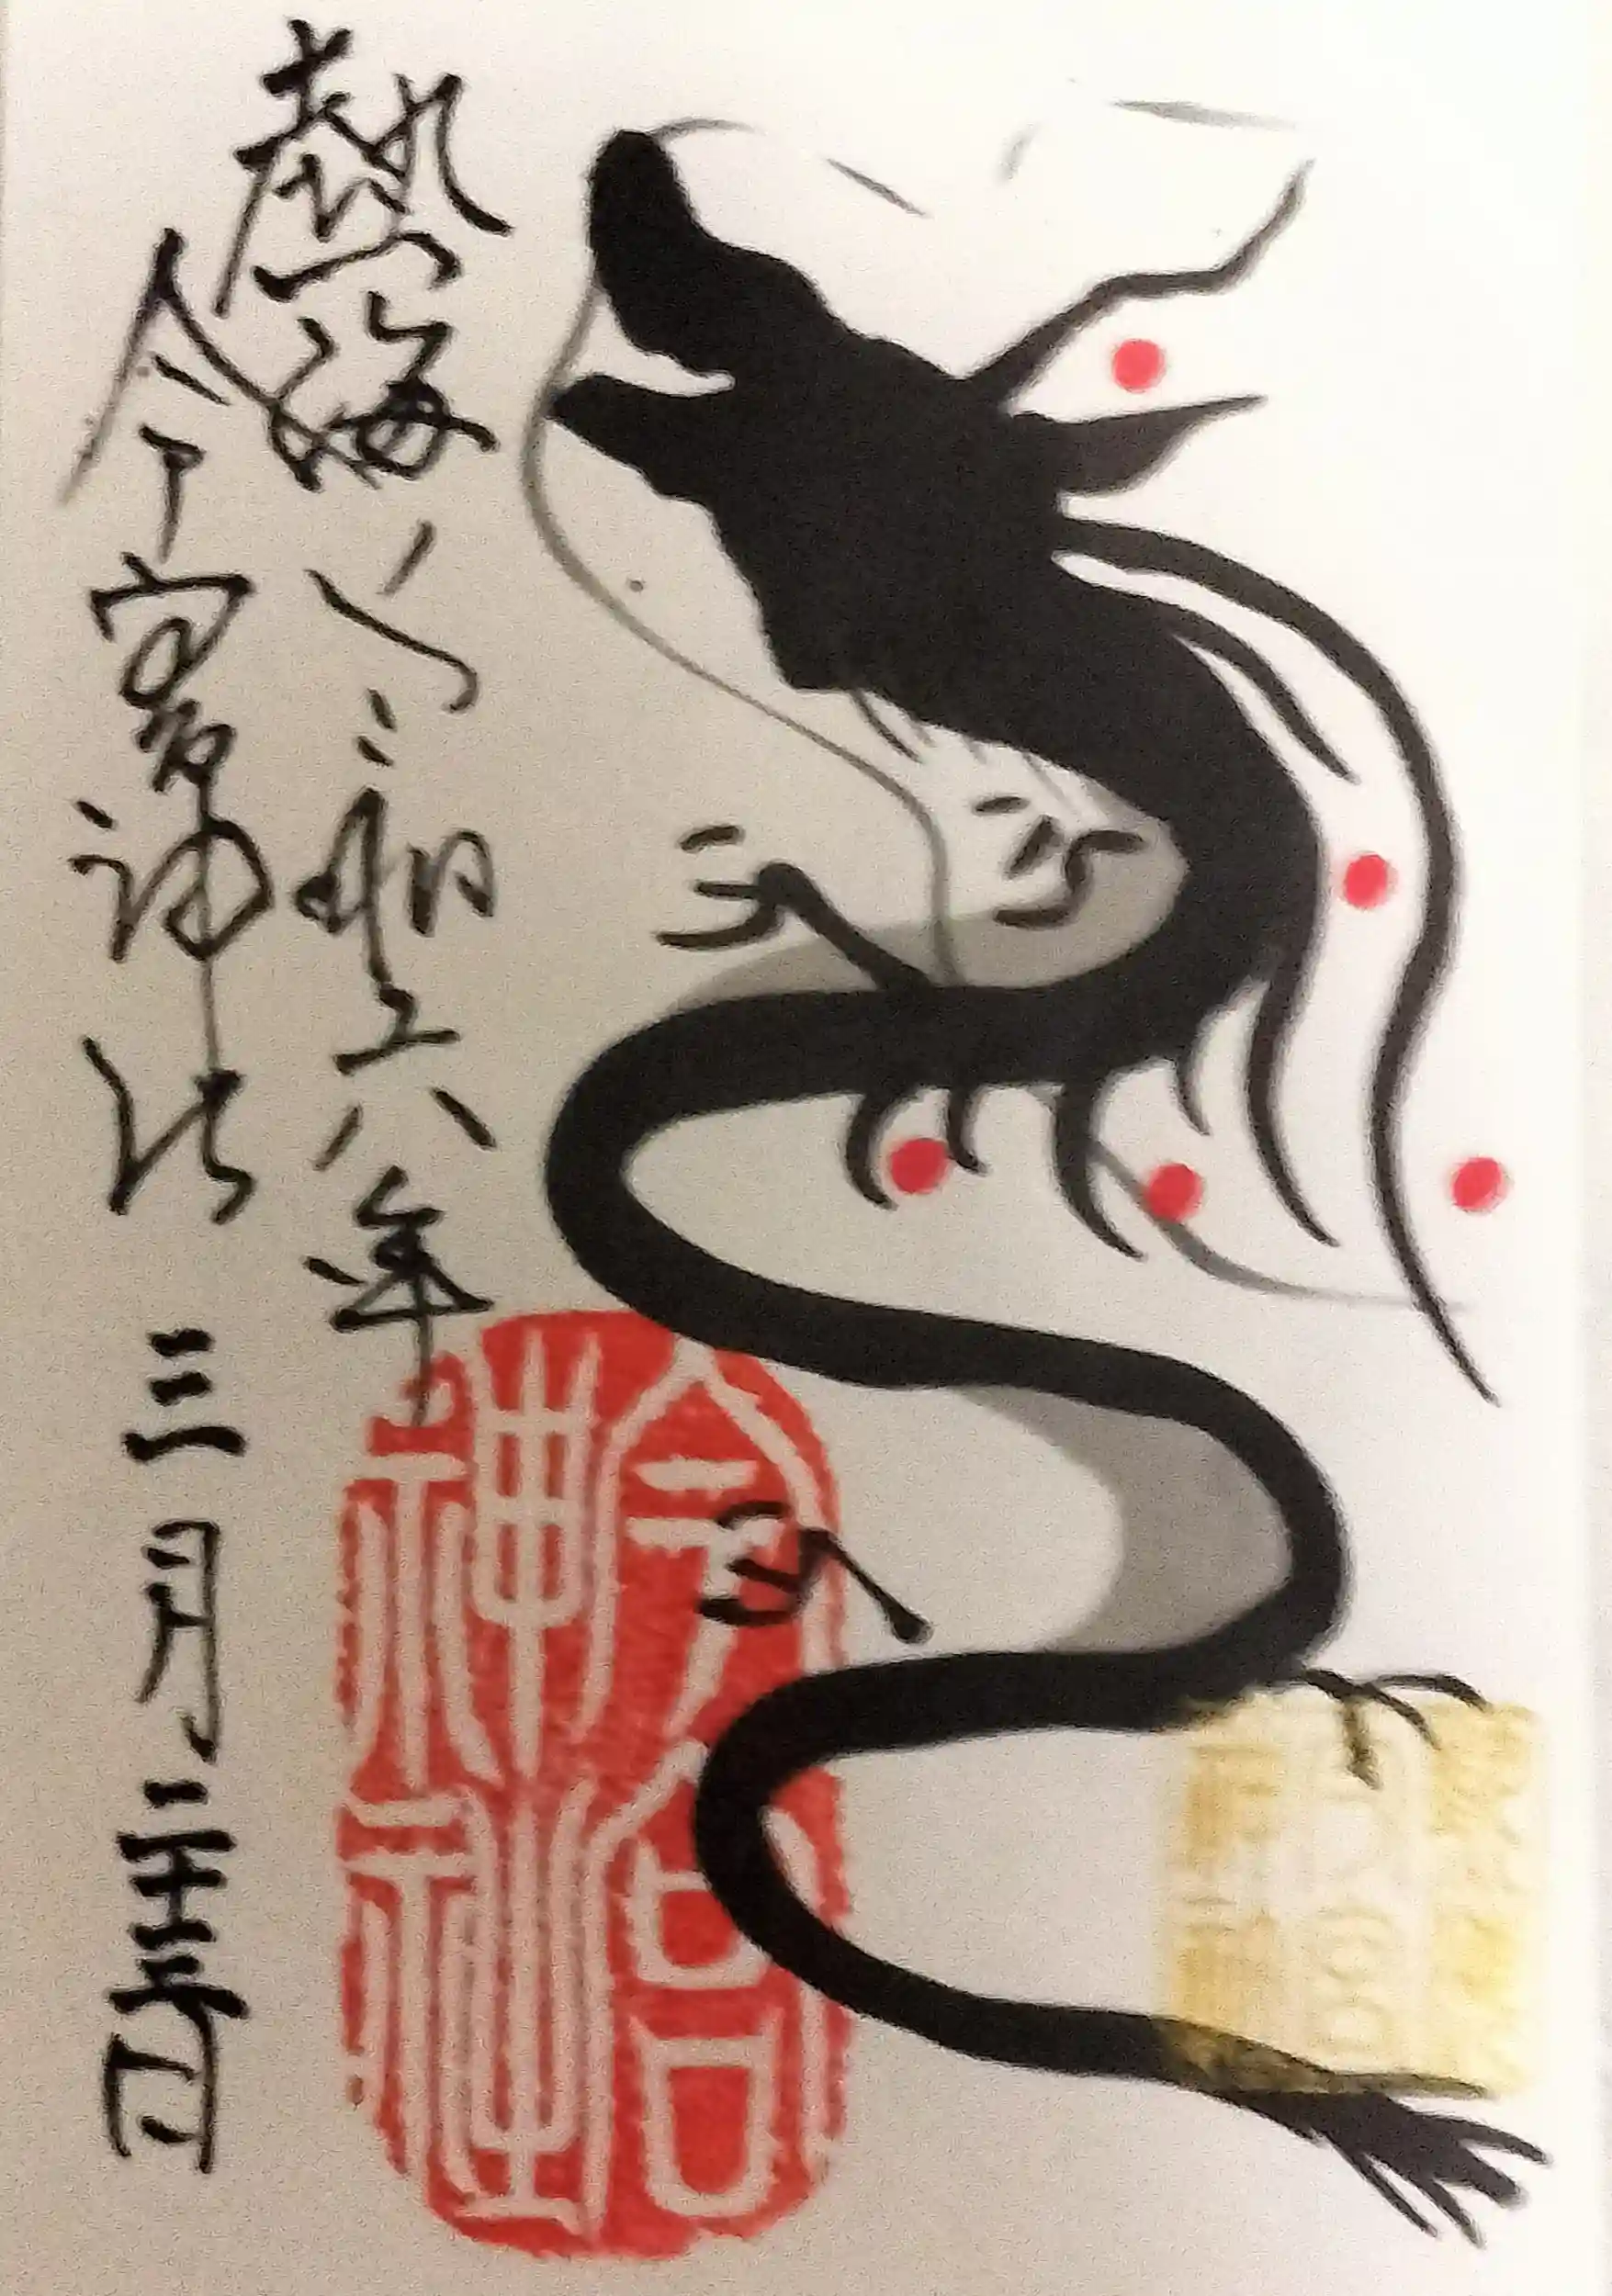 熱海 令和六年
今宮神社 三月二十五日
今宮
神社